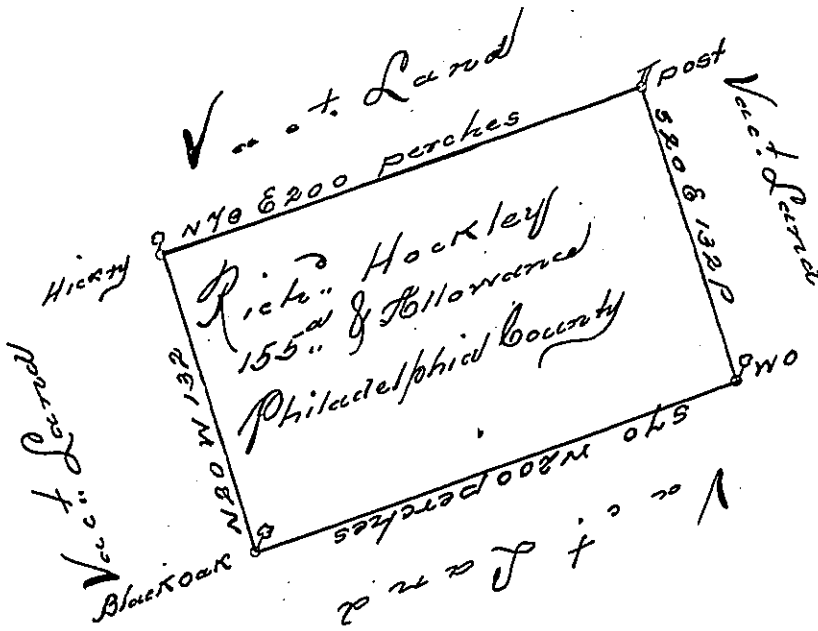 Vact. Land
post
N70 E200 perches
Vact. Land
S20 E 132 P
Hickry
Richd. Hockley
155a. & Allowance
Philadelphia County
Vact. Land
N20 W 132
WO
S70 W200 perches
Blackoak
Vact. Land